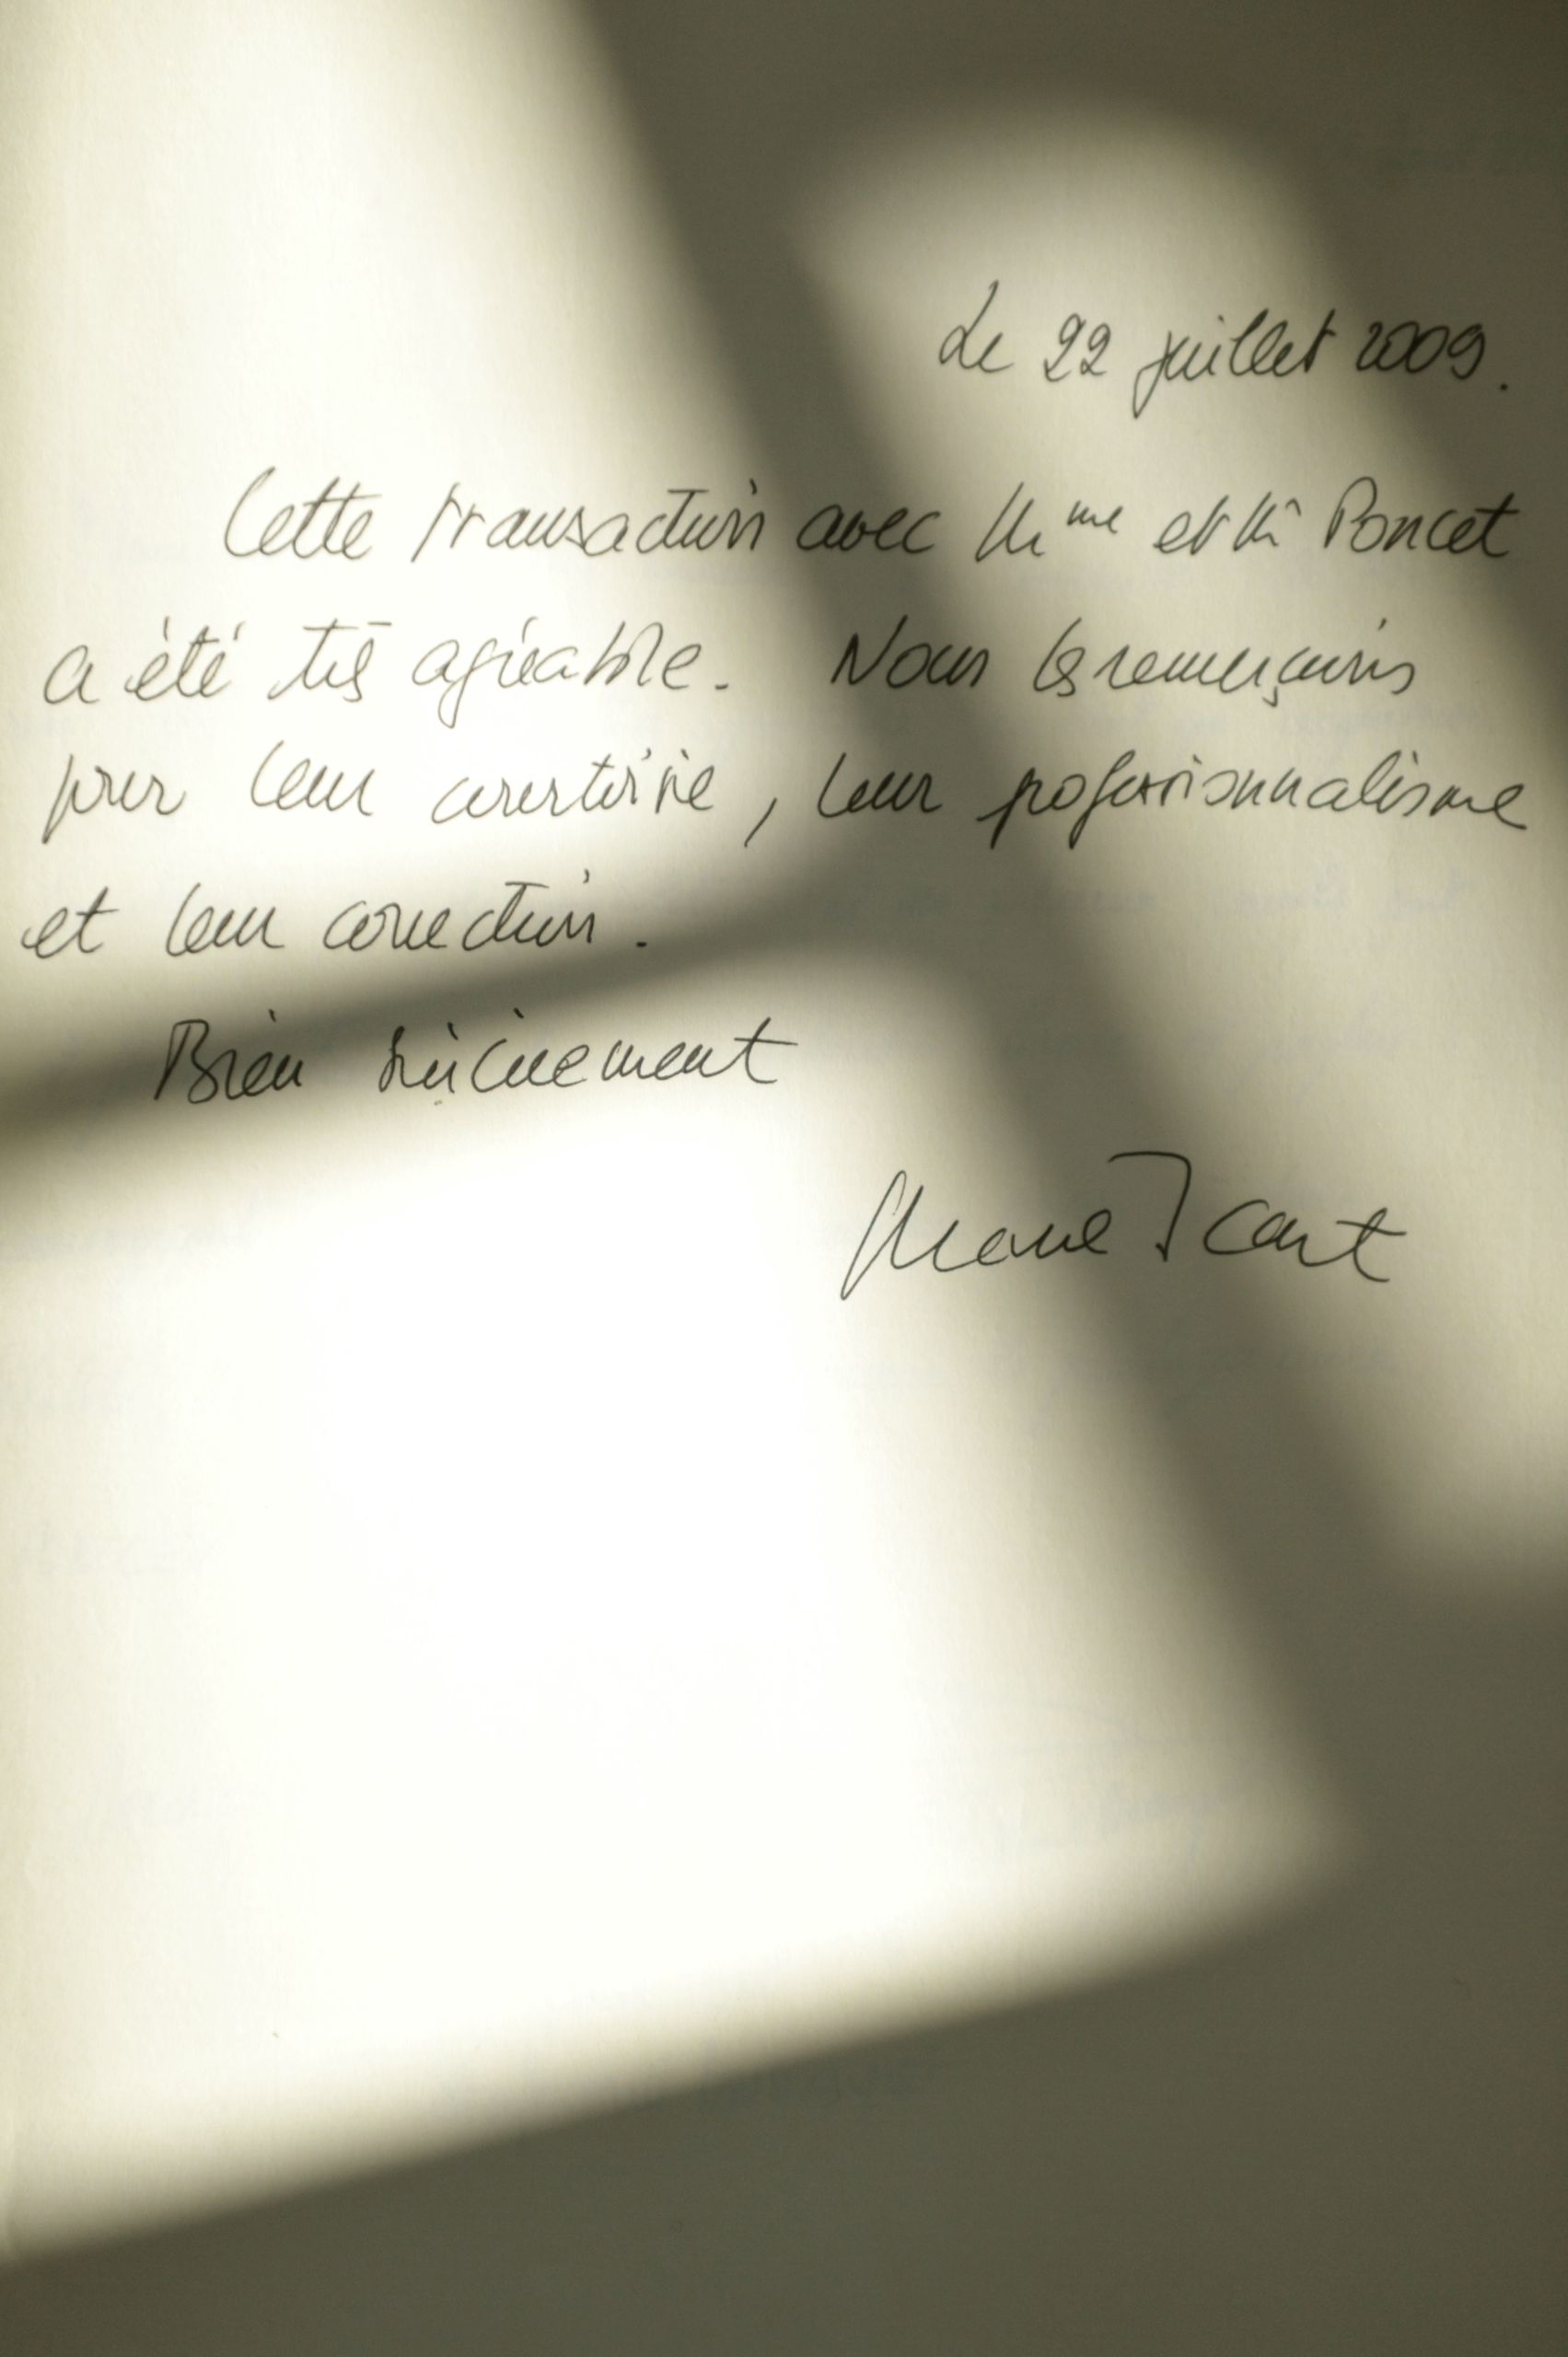 Le 22 juillet 2009.
Cette transaction avec Mme et Mr Poncet
a été très agréable. Nous les remercions
pour leur courtoisie, leur professionnalisme
et leur correction.
Bien sincèrement
Icart